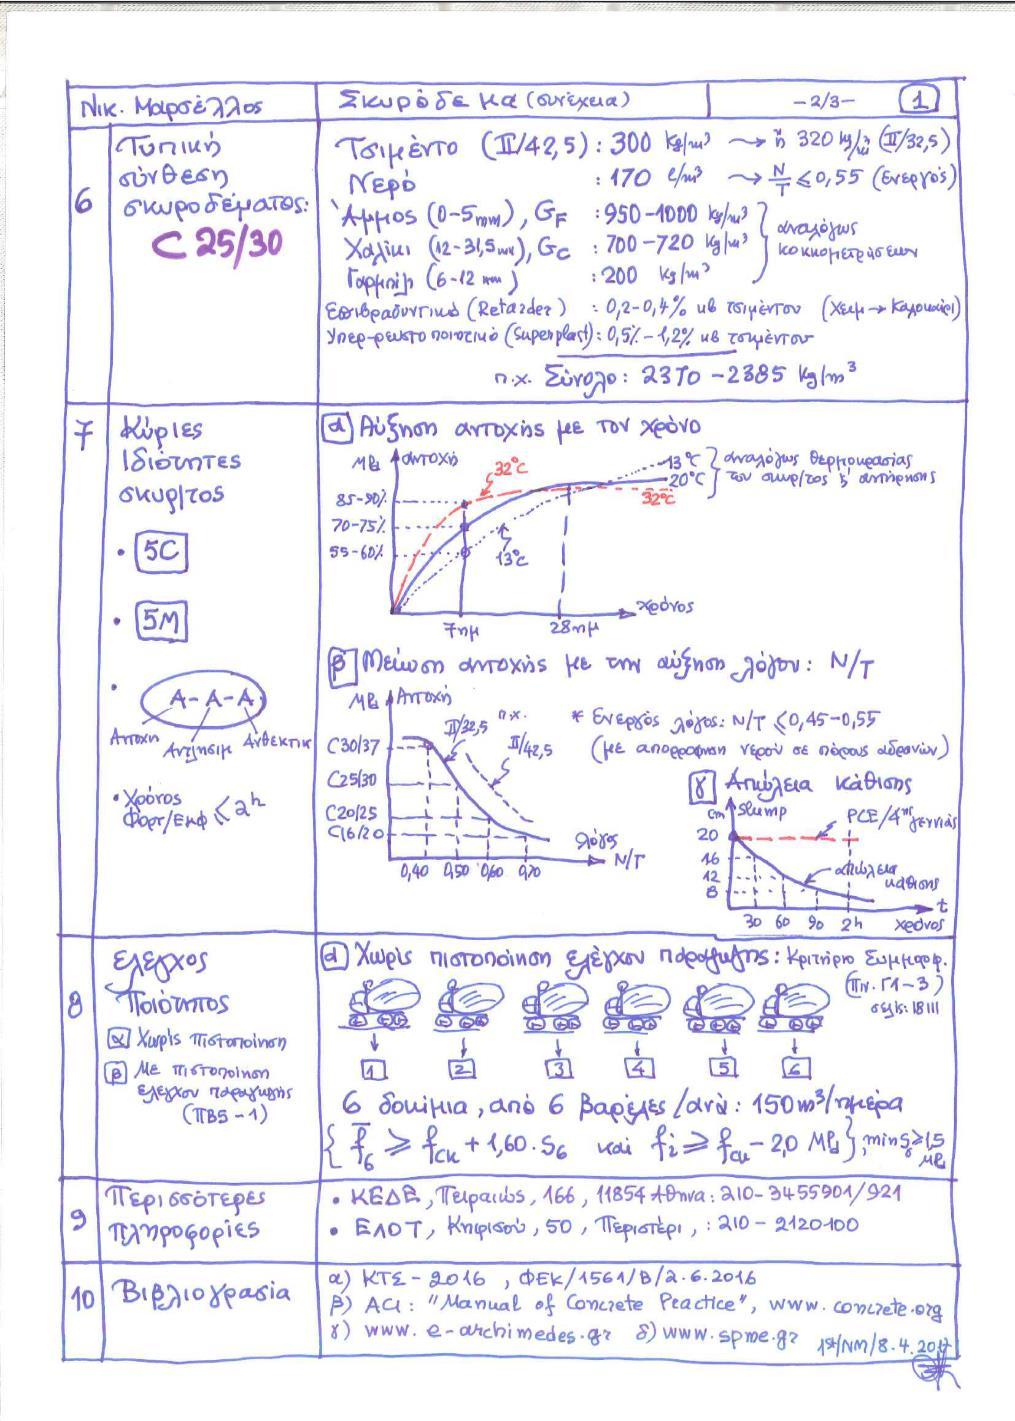 Νικ. Μαρσέλλος
Σκυρόδεμα (συνέχεια)
-2/3-
1
6
Τυπική
σύνθεση
σκυροδέματος:
C 25/30
Τσιμέντο (II/42,5) : 300 kg/m³ → ή 320 kg/m³ (II/32,5)
Νερό : 170 l/m³ → N/T ≤ 0,55 (Ενεργός)
Άμμος (0-5mm), GF : 950-1000 kg/m³
Χαλίκι (12-31,5mm), Gc : 700-720 kg/m³
Γαρμπίλι (6-12 mm) : 200 kg/m³
αναλόγως
κοκκομετρήσεων
Επιβραδυντικό (Retarder) : 0,2-0,4% κβ τσιμέντου (Χειμ → Καλοκαίρι)
Υπερ-ρευστοποιητικό (Superplast) : 0,5% - 1,2% κβ τσιμέντου
π.χ. Σύνολο : 2370 - 2385 kg/m³
7
Κύριες
Ιδιότητες
σκυρ/τος
• 5C
• 5M
• Α-Α-Α
Αντοχή
Αντ/ησιμ
Ανθεκτικ
• Χρόνος
Φορτ/Εκφ ≤ 2h
α Αύξηση αντοχής με τον χρόνο
MPa
αντοχή
32°C
13°C
20°C
32°C
αναλόγως θερμοκρασίας
του σκυρ/τος & συντήρησης
85-90%
70-75%
55-60%
13°C
7ημ
28ημ
χρόνος
β Μείωση αντοχής με την αύξηση λόγου : N/T
MPa
Αντοχή
π.χ.
II/32,5
II/42,5
C30/37
C25/30
C20/25
C16/20
0,40
0,50
0,60
0,70
λόγος
N/T
* Ενεργός λόγος: N/T ≤ 0,45-0,55
(με απορρόφηση νερού σε πόρους αδρανών)
γ Απώλεια κάθισης
cm
slump
PCE/4ης γεννιάς
20
16
12
8
απώλεια
κάθισης
30
60
90
2h
t
χρόνος
8
Ελεγχος
Ποιότητος
α Χωρίς πιστοποίηση
β Με πιστοποίηση
ελέγχου παραγωγής
(ΠΒ5-1)
α Χωρίς πιστοποίηση ελέγχου παραγωγής : Κριτήριο Συμμορφ.
(Πιν. Γ1-3)
σελίς: 18111
1
2
3
4
5
6
6 δοκίμια, από 6 βαρέλες /ανά : 150m³/ημέρα
{ f̄6 ≥ fck + 1,60·S6 και fi ≥ fck - 2,0 MPa }, min S6 ≥ 1,5
MPa
9
Περισσότερες
πληροφορίες
• ΚΕΔΕ, Πειραιώς, 166, 11854 Αθήνα : 210-3455901/921
• ΕΛΟΤ, Κηφισού, 50, Περιστέρι, : 210-2120100
10
Βιβλιογρασία
α) ΚΤΣ - 2016 , ΦΕΚ/1561/Β/2.6.2016
β) ACI : "Manual of Concrete Practice", www.concrete.org
γ) www.e-archimedes.gr δ) www.spme.gr
1st/NM/8.4.2017